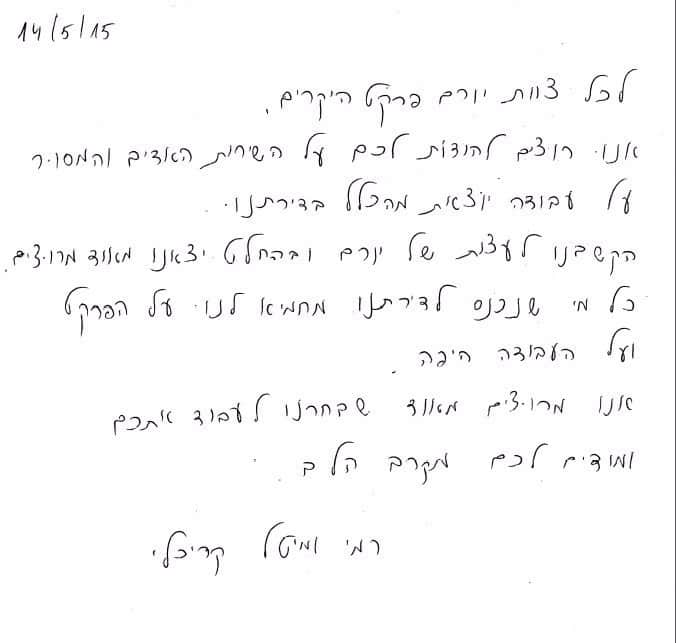 14/5/15
לכל צוות יורם פרקט היקרים,
אנו רוצים להודות לכם על השירות האדיב והמסור
על עבודה יוצאת מהכלל בדירתנו.
הקשבנו לעצות של יורם ובהחלט יצאנו מאוד מרוצים.
כל מי שנכנס לדירתנו מחמיא לנו על הפרקט
ועל העבודה היפה.
אנו מרוצים מאוד שבחרנו לעבוד איתכם
ומודים לכם מקרב הלב.
רמי ומיטל קריכלי